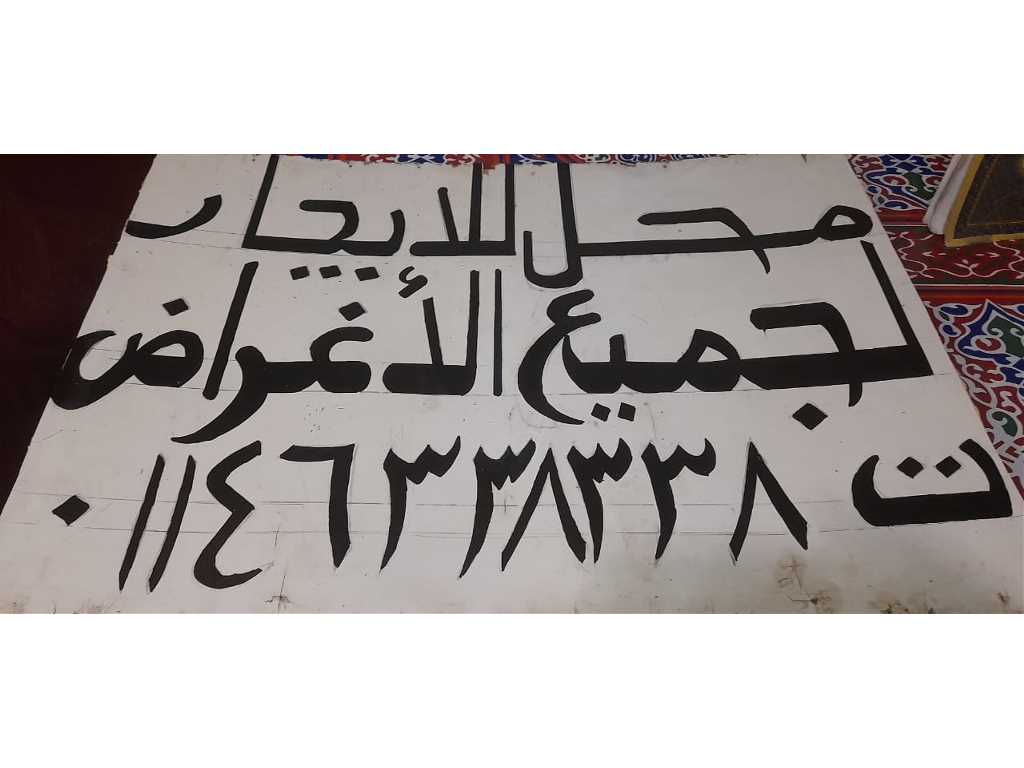 محل للايجار
لجميع الأغراض
ت ٠١١٤٦٣٣٨٣٣٨